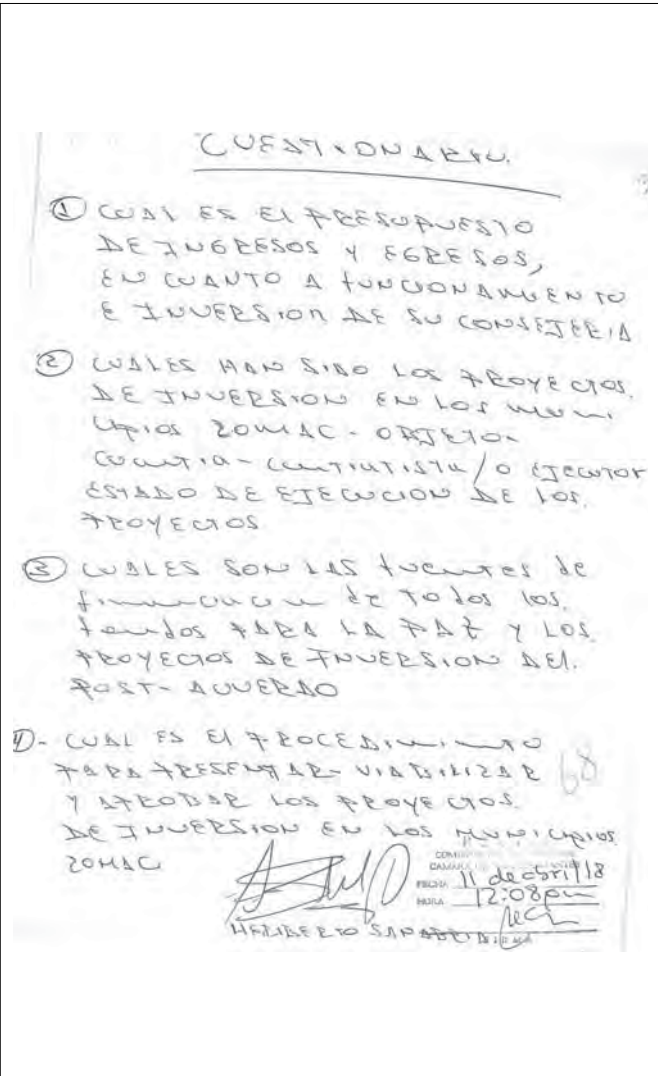 CUESTIONARIO.
① CUAL ES El PRESUPUESTO
DE INGRESOS Y EGRESOS,
EN CUANTO A FUNCIONAMIENTO
E INVERSION DE SU CONSEJERIA
② CUALES HAN SIDO LOS PROYECTOS
DE INVERSION EN LOS MUNI
CIPIOS ZOMAC - OBJETO -
CUANTIA - CONTRATISTA / O EJECUTOR
ESTADO DE EJECUCION DE LOS
PROYECTOS
③ CUALES SON LAS fuentes de
financiacion de todos los
fondos PARA LA PAZ Y LOS
PROYECTOS DE INVERSION DEL
POST-ACUERDO
④ - CUAL ES El PROCEDIMIENTO
PARA PRESENTAR - VIABILIZAR
Y APROBAR LOS PROYECTOS
DE INVERSION EN LOS MUNICIPIOS
ZOMAC
68
FECHA 11 de abril 18
HORA 12:08pm
HERIBERTO SANABRIA